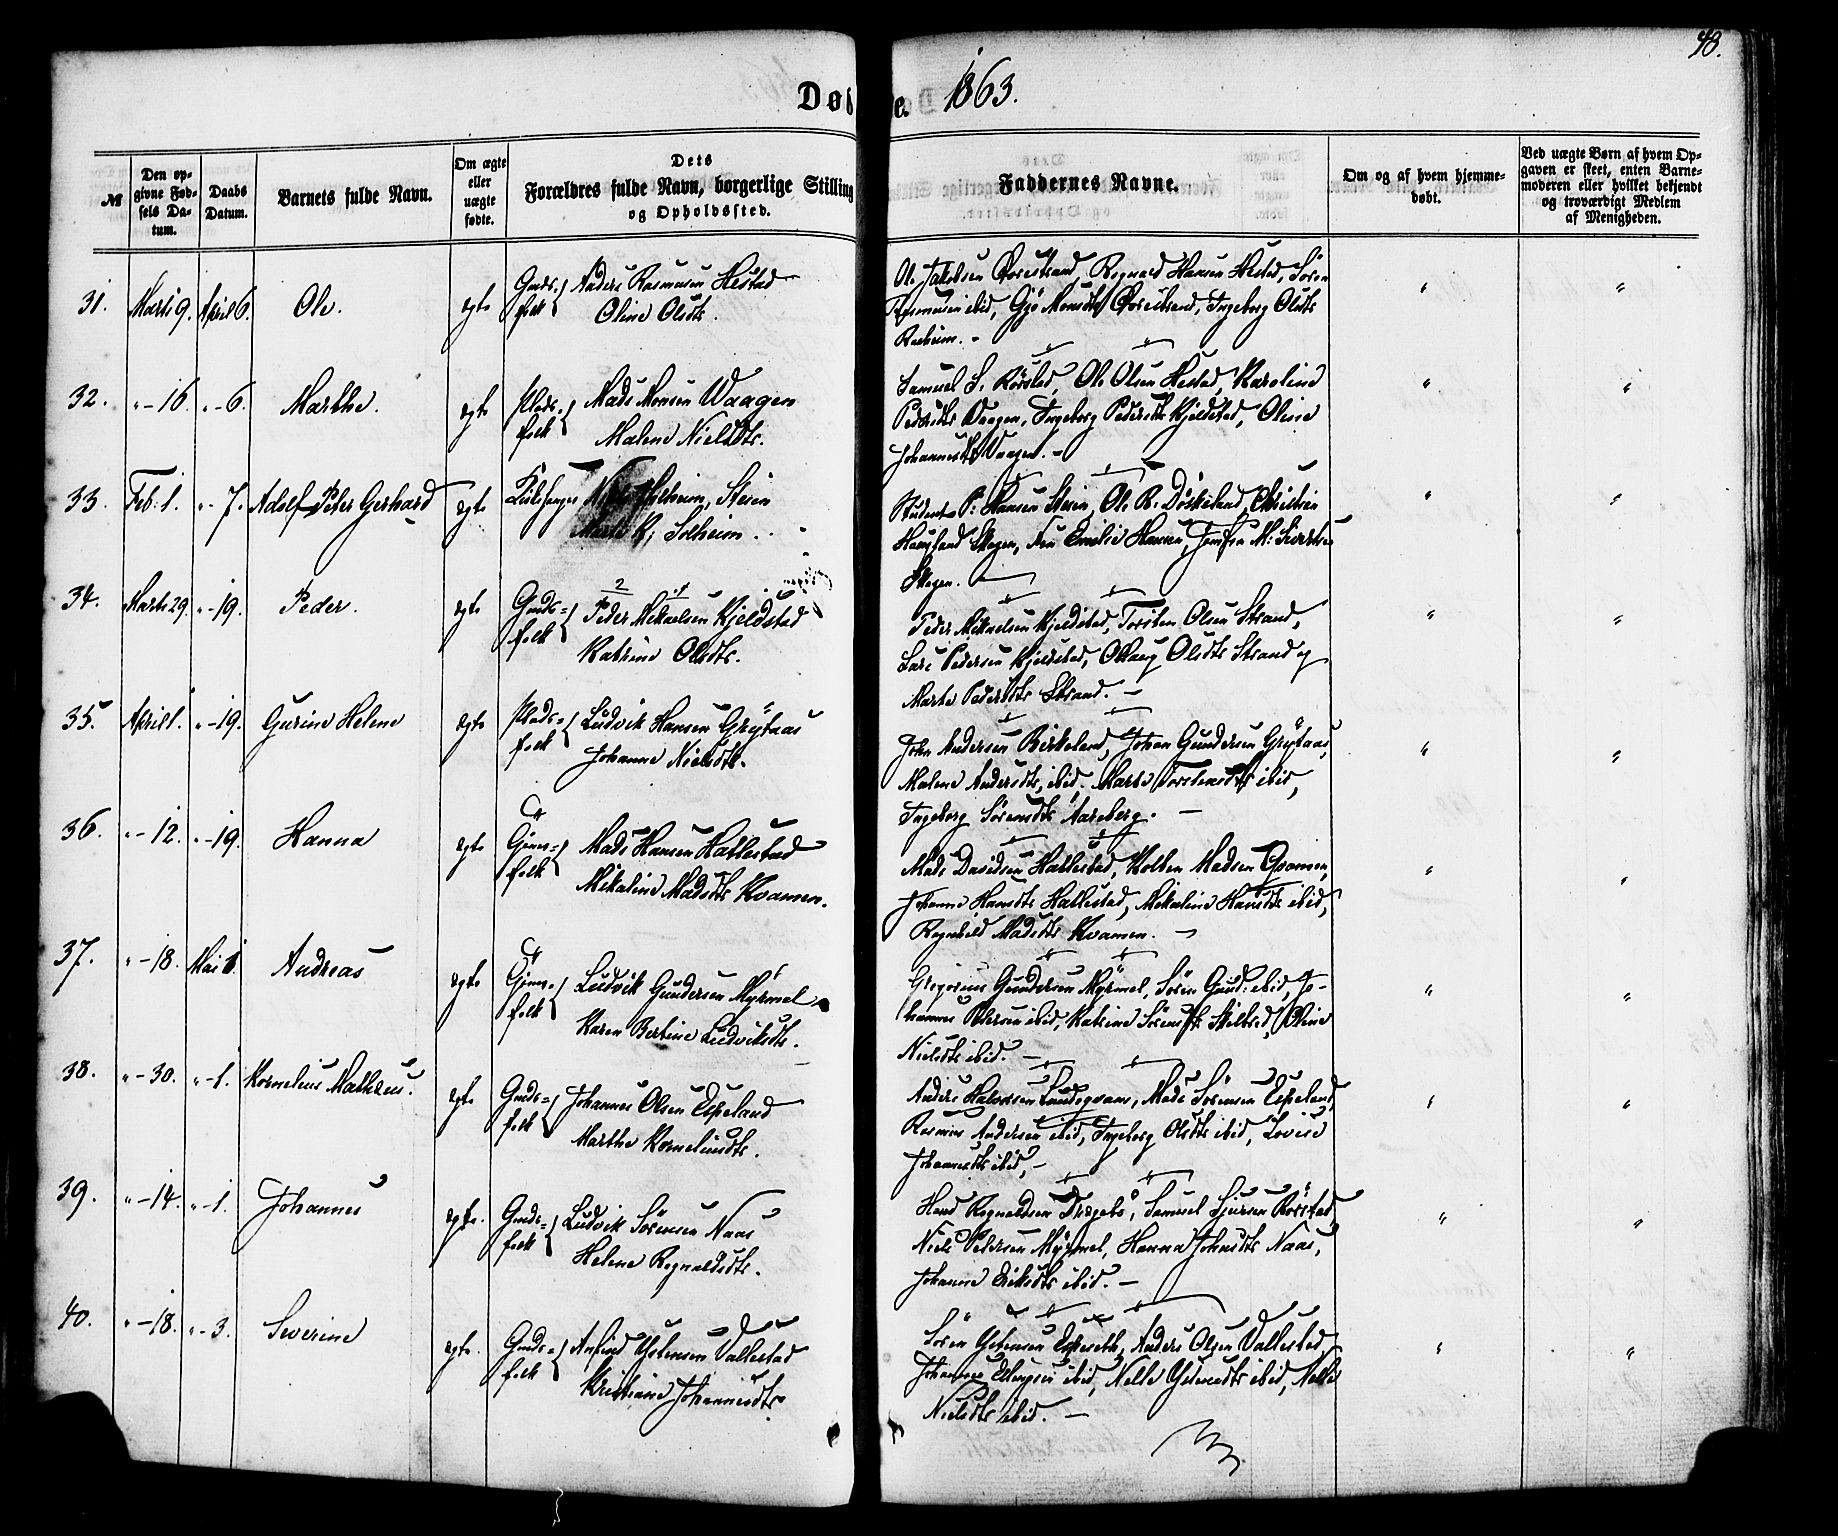 48.
Døbte. 1863.
№
Den opgivne Fødsels Datum.
Daabs Datum.
Barnets fulde Navn.
Om ægte eller uægte fødte.
Dets Forældres fulde Navn, borgerlige Stilling og Opholdssted.
Faddernes Navne.
Om og af hvem hjemmedøbt.
Ved uægte Børn af hvem Opgaven er skeet, enten Barnemoderen eller hvilket bekjendt og troværdigt Medlem af Menigheden.
31. Marts 9. April 6. Ole. ægte Gmds. folk { Anders Rasmusen Hestad
Oline Olsdtr.
Ole Jakobsen Qvrestrand, Rognald Hansen Hestad, Sören
Rasmusen ibid, Gjö Monsdtr Qvrestrand, Ingeborg Olsdtr
32. "-16. "-6. Marthe. ægte Plads. folk { Mads Monsen Waagen
Malene Nielsdtr.
Samuel S. Rörstad, Ole Olsen Hestad, Karoline
Pedersdtr Vaagen, Ingeborg Pedersdtr Kjeldstad, Oline
Johannesdtr Vaagen. -
33. Feb: 1. "-7. Adolf Peter Gerhard ægte Solheim, Steien
Marte K. Solheim.
Student P. Hansen Steien, Ole R. Döskeland, Christen
Haugland Skagen, Fru Emilie Hansen, Jomfru M:
Skagen.
34. Marts 29. "-19. Peder. ægte Gmds= folk { Peder Mekaelsen Kjeldstad
Katrine Olsdtr.
Peder Mikaelsen Kjeldstad, Torsten Olsen Strand,
Lars Pedersen Kjeldstad, Olsdtr Strand og
Marte Pedersdtr Strand. -
35. April 1. "-19. Gurine Helene ægte Plads= folk { Ludvik Hansen Grÿtaas
Johanne Nielsdtr.
John Andersen Birkeland, Johan Gundersen Grÿtaas,
Malene Andersdtr, ibid. Marte Torstensdtr ibid,
Ingeborg Sörensdtr Aareberg. -
36. "-12. "-19. Hanna ægte folk { Mads Hansen Hallestad
Mekaline Madsdtr Kvamen.
Mads Davidsen Hallestad, Kolben Madsen Qvamen,
Johanne Hansdtr Hallestad, Mikaline Hansdtr ibid,
Rognhild Madsdtr Kvamen. -
37. "-18. Mai 1. Andreas ægte folk { Ludvik Gundersen Mÿrmel
Karen Bertine Ludviksdtr.
Gregorius Gundersen Mÿrmel, Sören Gund: ibid, Jo-
hannes Pedersen ibid, Katrine Sörensdtr, Oline
Nielsdtr ibid. -
38. "-30. "-1. Kornelius Matheus. ægte Gmds= folk { Johannes Olsen Espeland
Marthe Korneliusdtr.
Anders Halvorsen, Mads Sörensen Espeland,
Rasmus Andersen ibid, Ingeborg Olsdtr ibid, Lovise
Johannesdtr ibid, -
39. "-14. "-1. Johannes ægte. Gmds= folk { Ludvik Sörensen Naas
Helene Rognaldsdtr.
Hans Rognaldsen, Samuel Sjursen Rörstad,
Niels Pedersen Mÿrmel, Hanna Johnsdtr Naas,
Johanne Eriksdtr ibid. -
40. "-18. "-3. Severine ægte. Gmds= folk { Anfind Ystensen Vallestad
Kristiane Johannesdtr
Sören Ystensen Espeseth, Anders Olsen Vallestad,
Johannes ibid, Nille Ystensdtr ibid, Nille
Nielsdtr ibid. -